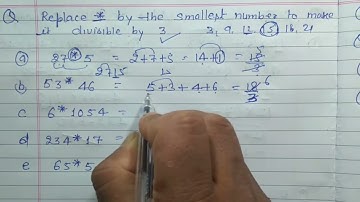 Q Replace * by the smallest number to make
it divisible by 3 3, 9, 12, 15, 18, 21
a) 27*5 = 2+7+5 = 14+1 = 15
2715
b) 53*46 = 5+3+4+6 = 18 6
3
c 6*1054 =
d 234*17 =
e 65*5